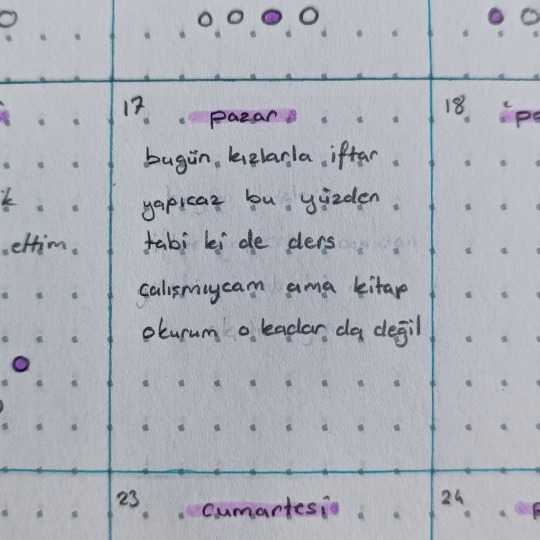 17 pazar
bugün kızlarla iftar
yapıcaz bu yüzden
tabi ki de ders
çalışmıycam ama kitap
okurum o kadar da değil
18
ettim
23 cumartesi
24